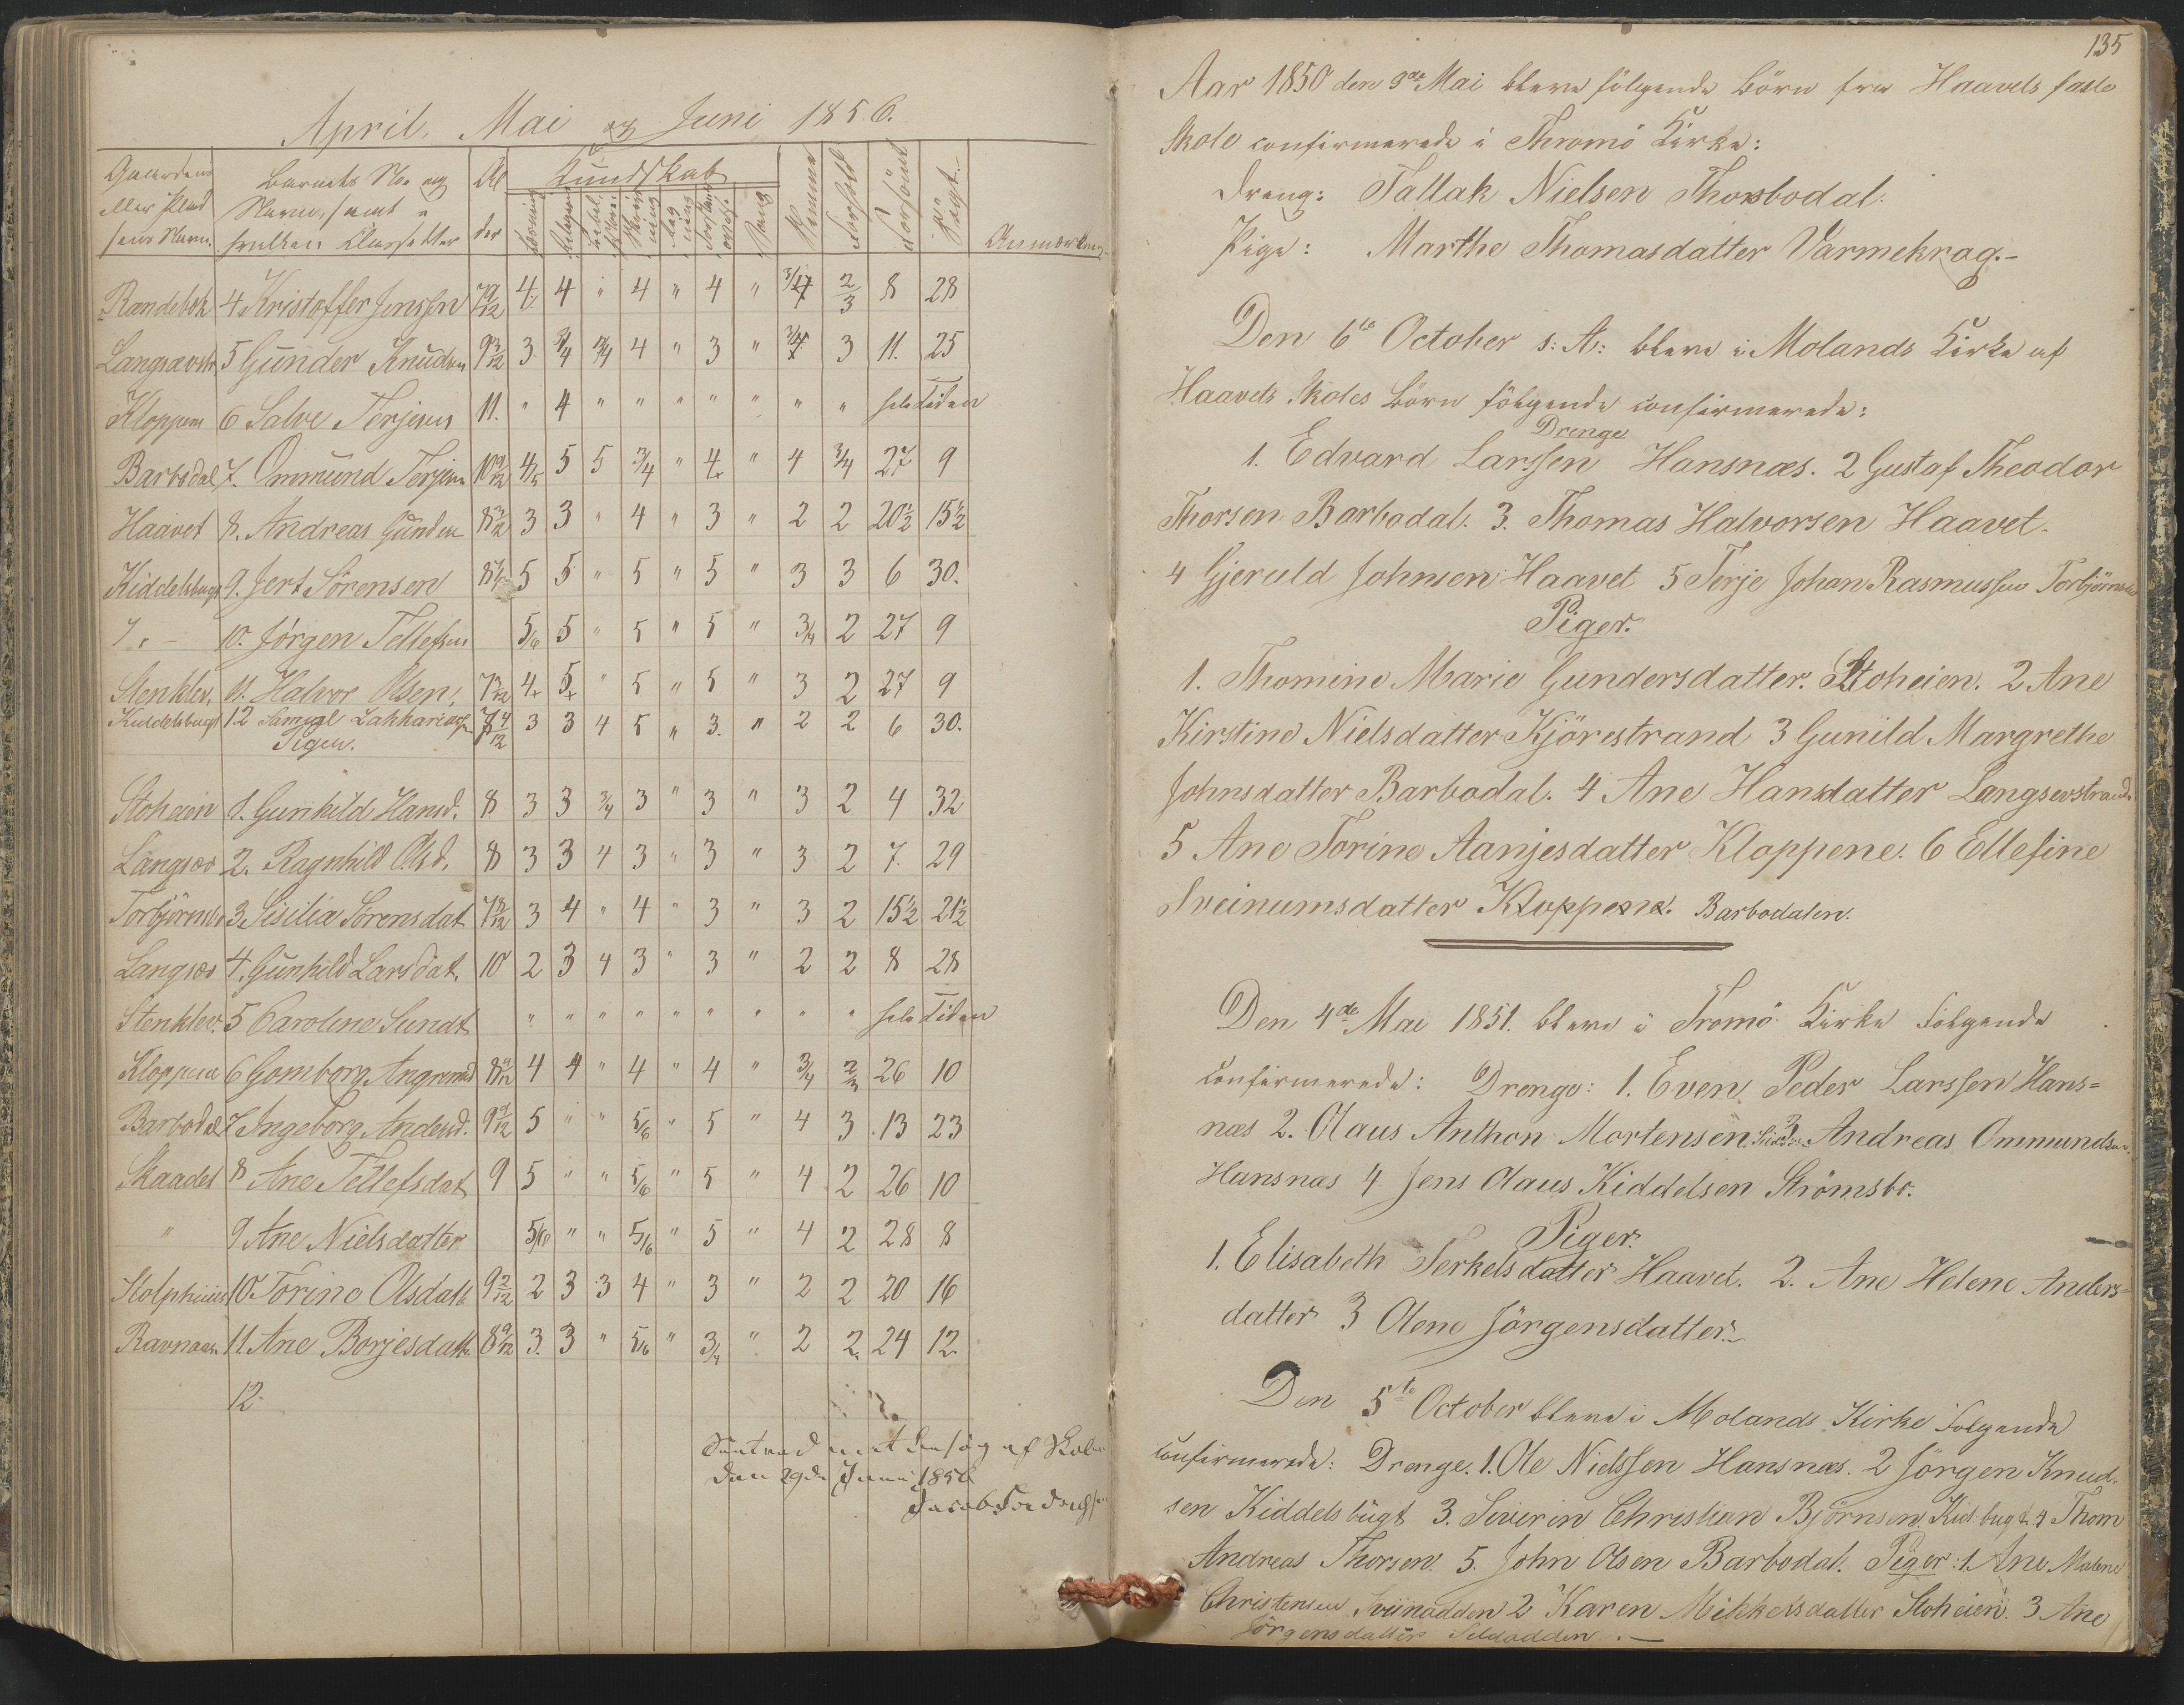 April, Mai og Juni 1856.
Gaardens eller Pladsens Navn. Barnets No og Navn, samt i hvilken Classe etter Alder Kundskab Læsning Religion Bibel Skrivning Regning Sang Evne Forhold Forsömt Sögt. Anmærkning
Randebok 4 Kristoffer Jenssen 7 9/12 4 4 " 4 " 4 " 3/4 2/3 8 28
Langsævstr 5 Gunder Knudsen 9 3/12 3 3/4 3/4 4 " 3 " 3/4 3 11. 25
Kloppene 6 Salve Terjesen 11. " 4 " " " " " " " hele Tiden
Barbodal 7. Ommund Terjesen 10 9/12 4/5 5 5 3/4 " 4 " 4 3/4 27 9
Haavet 8. Andreas Gunders 8 3/12 3 3 " 4 " 3 " 2 2 20½ 15½
Kiddelsbugt 9. Jert Sörensen 8 5 5 " 5 " 5 " 3 3 6 30.
" 10. Jörgen Tellefsen 5/6 5 " 5 " 5 " 3/4 2 27 9
Stenklev. 11. Halvor Olsen, 7 3/12 4 5 " 5 " 5 " 3 2 27 9
Kiddelsbugt 12 Samuel Zakkariasen 7 4/12 3 3 4 5 " 3. " 2 2 6 30.
Piger.
Stoheien 1. Gunhild Hansd. 8 3 3 3/4 3 " 3 " 3 2 4 32
Langsæv 2. Ragnhild Olsd. 8 3 3 4 3 " 3 " 3 2 7. 29
Torbjörnsbo 3. Sisilia Sörensdat 7 8/12 3 4 " 4 " 3 " 3 2 15½ 21½
Langsæv 4. Gunhild Larsdat. 10 2 3 4 3 " 3 " 2 2 8 28
Stenklev. 5 Caroline Sundt " " " " " " " " " hele Tiden
Kloppene 6 Gomborg Angremsd 8 9/12 4 4 " 4 " 4 " 3/4 2/3 26 10
Barbodal 7 Ingeborg Andersd. 9 9/12 5 " " 5/6 " 5 " 4 3 13 23
Skaadel 8 Ane Tellefsdat 9 5 " " 5/6 " 5 " 4 2 26 10
" 9 Ane Nielsdatter 5/6 " " 5/6 " 5 " 4 2 28 8
Stolpheien 10. Torine Olsdatt 9 2/12 2 3 3 4 " 3 " 2 2 20 16
Ravnaas. 11. Ane Borjesdatt. 8 9/12 3. 3 " 5/6 " 3/4 " 2 2. 24 12
12.
ved et besög af Skolen
den 29de Juni 1856
Jacob Fredrichsen
135
Aar 1850 den 9de Mai bleve fölgende Börn fra Haavets faste
Skole confirmerede i Thromö Kirke:
Dreng: Tallak Nielsen Thorsbodal.
Pige: Marthe Thomasdatter Varmekrog.-
Den 6te October s: A: bleve i Molands Kirke af
Haavets Skoles Börn fölgende confirmerede:
Drenge
1. Edvard Larssen Hansnæs. 2 Gustaf Theodor
Thorsen Barbodal. 3. Thomas Halvorsen Haavet.
4 Gjeruld Johnsen Haavet 5 Terje Johan Rasmussen Torbjörnsbo
Piger.
1. Thomine Marie Gundersdatter. Stoheien. 2 Ane
Kirstine Nielsdatter Kjörestrand 3 Gunild Margrethe
Johnsdatter Barbodal. 4 Ane Hansdatter Langsevstrand.
5 Ane Torine Aanjesdatter Kloppene. 6 Ellefine
Sveinumsdatter Kloppene. Barbodalen.
Den 4de Mai 1851. bleve i Tromö Kirke Fölgende
confirmerede: Drenge: 1. Even Peder Larssen Hans=
næs 2. Olaus Anthon Mortensen 3 Andreas Ommundsen.
Hansnæs 4 Jens Olaus Kiddelsen Strömsbo.
Piger.
1. Elisabeth Terkelsdatter Haavet. 2. Ane Helene Anders=
datter 3 Olene Jörgensdatter.
Den 5te October bleve i Molands Kirke Fölgende
confirmerede: Drenge. 1. Ole Nielssen Hansnæs. 2 Jörgen Knud-
sen Kiddelsbugt 3. Siverin Christian Björnsen Kid. bugt. 4 Thom
Andreas Thorsen. 5. John Olsen Barbodal. Piger: 1. Ane Malene
Christensen Sviinodden 2 Karen Mikkelsdatter Stoheien. 3 Ane
Jörgensdatter Sildodden.-